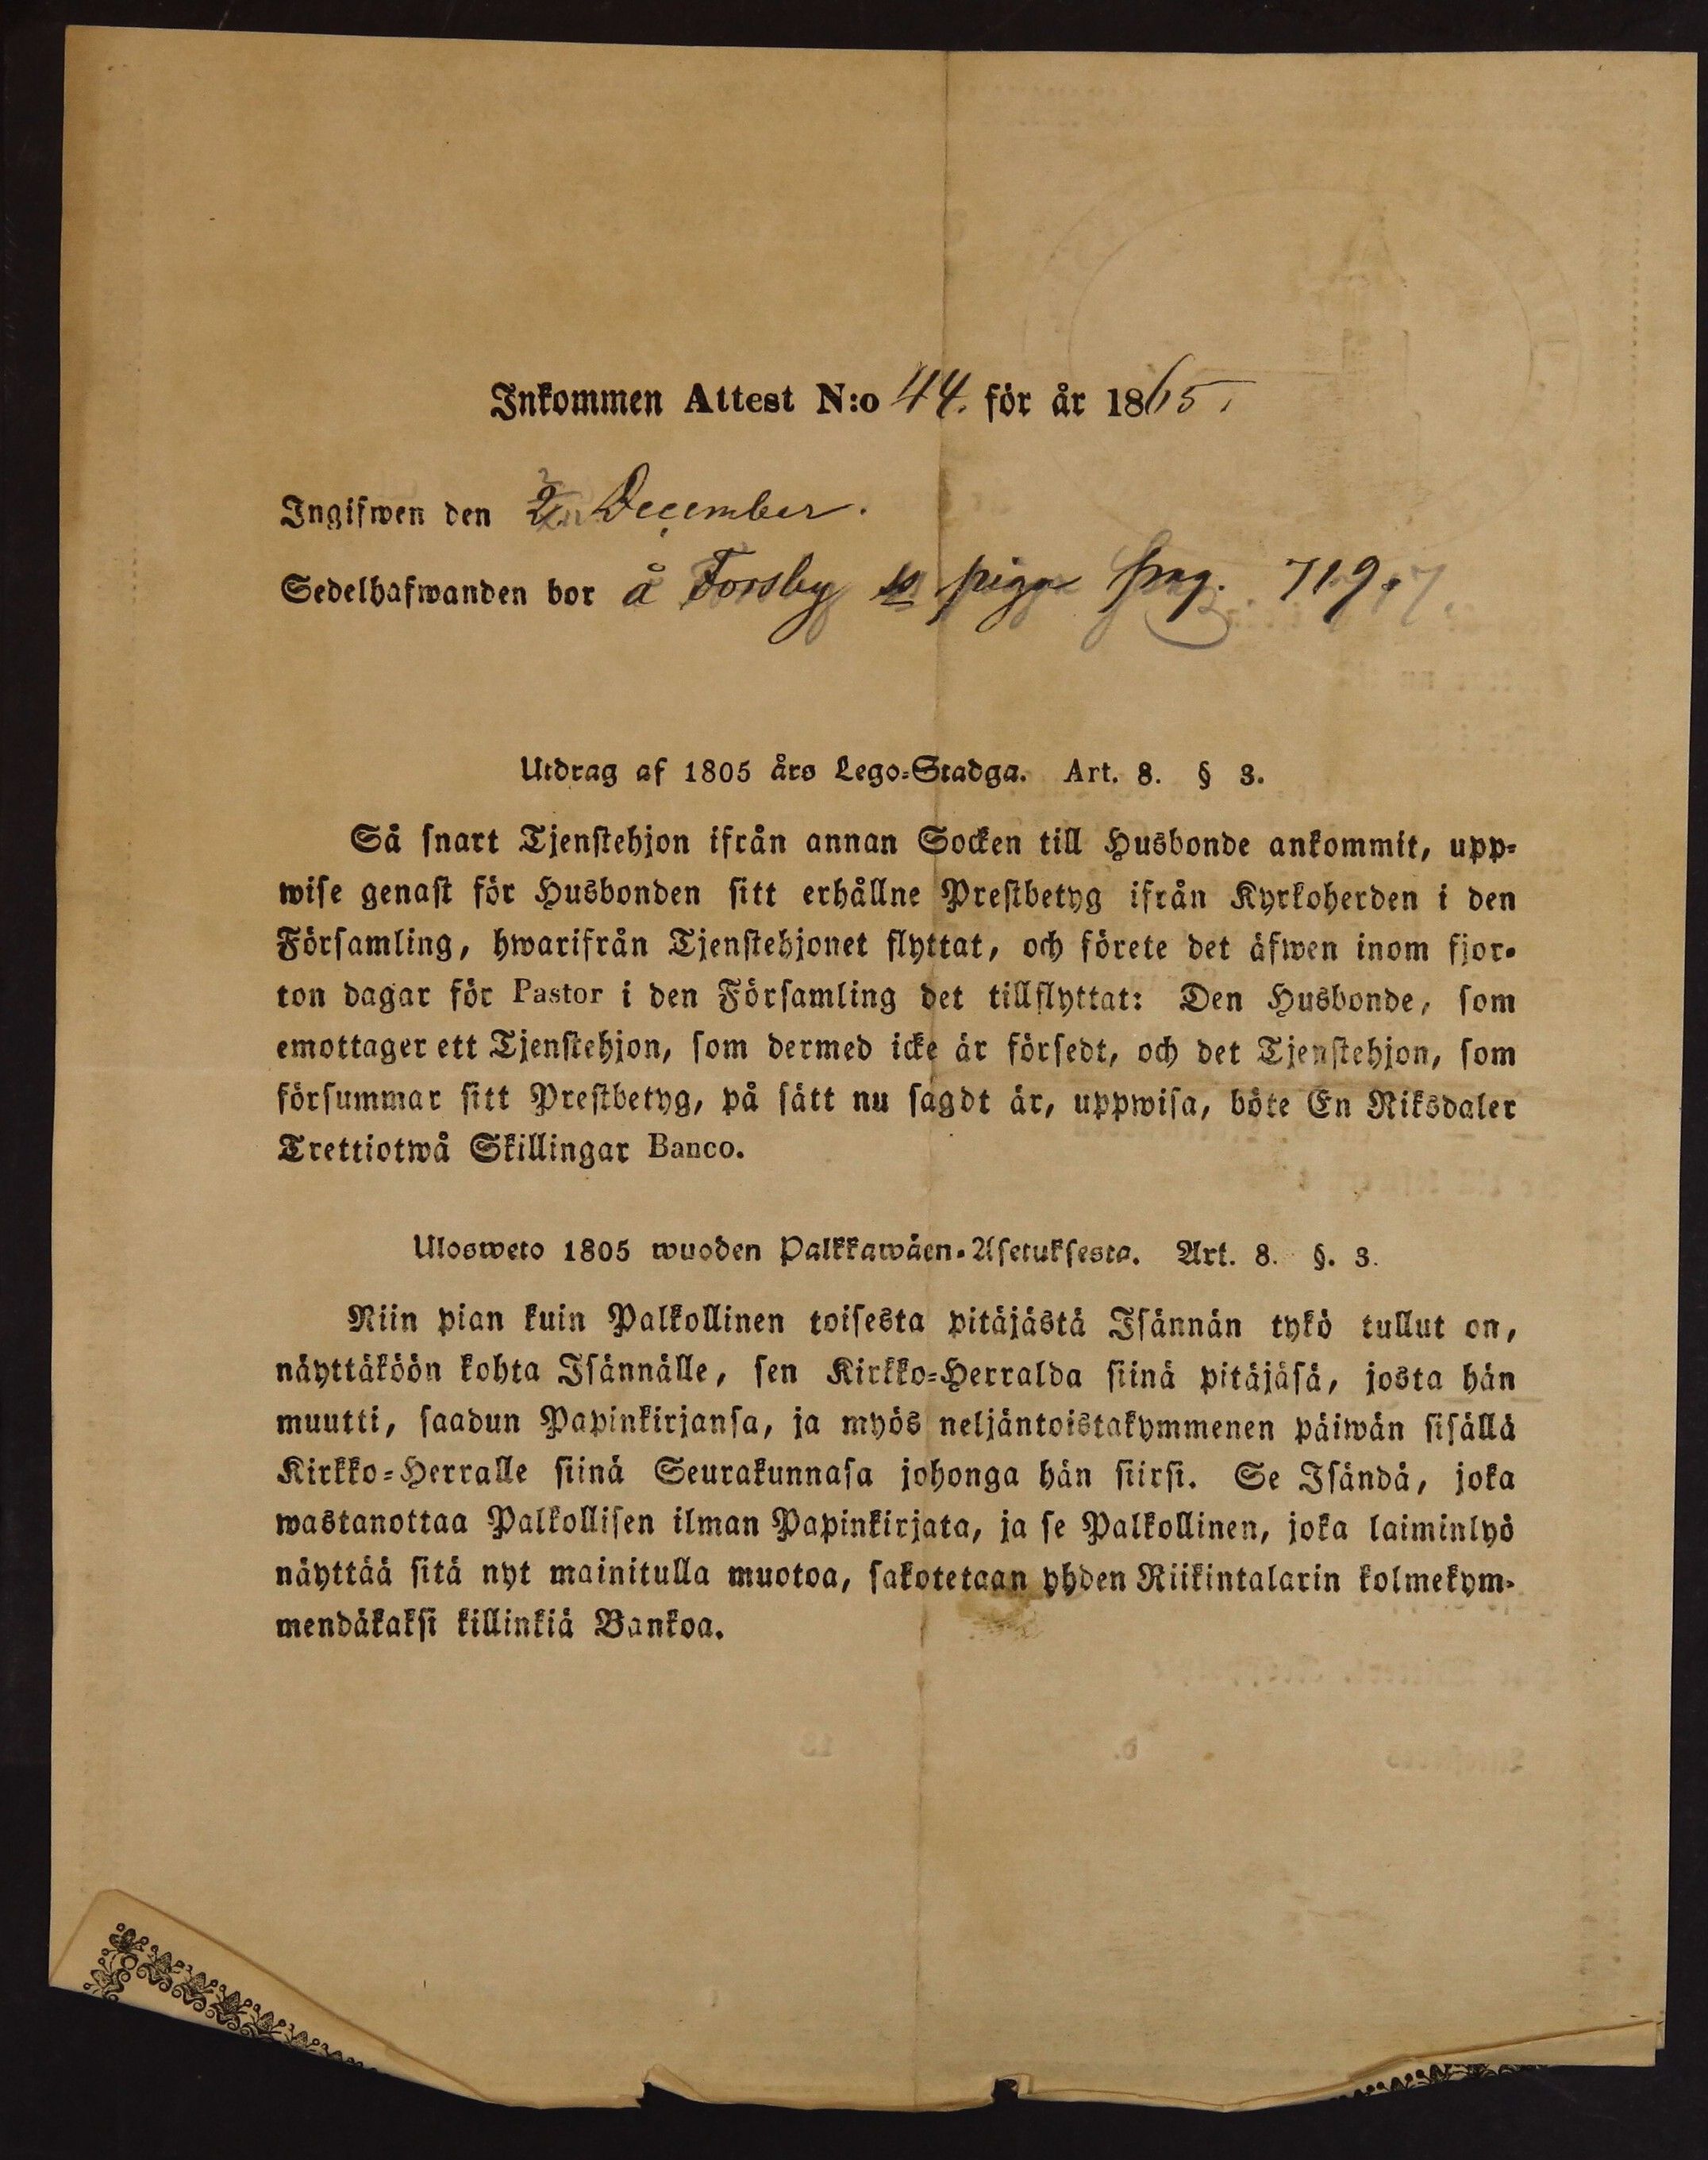 Inkommen Attest N:o 44. för år 1865.
Ingifwen den 2 December.
Sedelhafwanden bor å Forsby ss piga pag. 719.
Utdrag af 1805 års Lego-Stadga. Art. 8. § 3.
Så snart Tjenstehjon ifrån annan Socken till Husbonde ankommit, upp-
wise genast för Husbonden sitt erhållne Prestbetyg ifrån Kyrkoherden i den
Församling, hwarifrån Tjenstehjonet flyttat, och förete det äfwen inom fjor-
ton dagar för Pastor i den Församling det tillflyttat: Den Husbonde, som
emottager ett Tjenstehjon, som dermed icke är försedt, och det Tjenstehjon, som
försummar sitt Prestbetyg, på sätt nu sagdt är, uppwisa, böte En Riksdaler
Trettiotwå Skillingar Banco.
Ulosweto 1805 wuoden Palkkawäen-Asetuksesta. Art. 8. §. 3.
Niin pian kuin Palkollinen toisesta pitäjästä Isännän tykö tullut on,
näyttäköön kohta Isännälle, sen Kirkko-Herralda siinä pitäjäsä, josta hän
muutti, saadun Papinkirjansa, ja myös neljäntoistakymmenen päiwän sisällä
Kirkko-Herralle siinä Seurakunnasa johonga hän siirsi. Se Isändä, joka
wastanottaa Palkollisen ilman Papinkirjata, ja se Palkollinen, joka laiminlyö
näyttää sitä nyt mainitulla muotoa, sakotetaan yhden Riikintalarin kolmekym-
mendäkaksi killinkiä Bankoa.